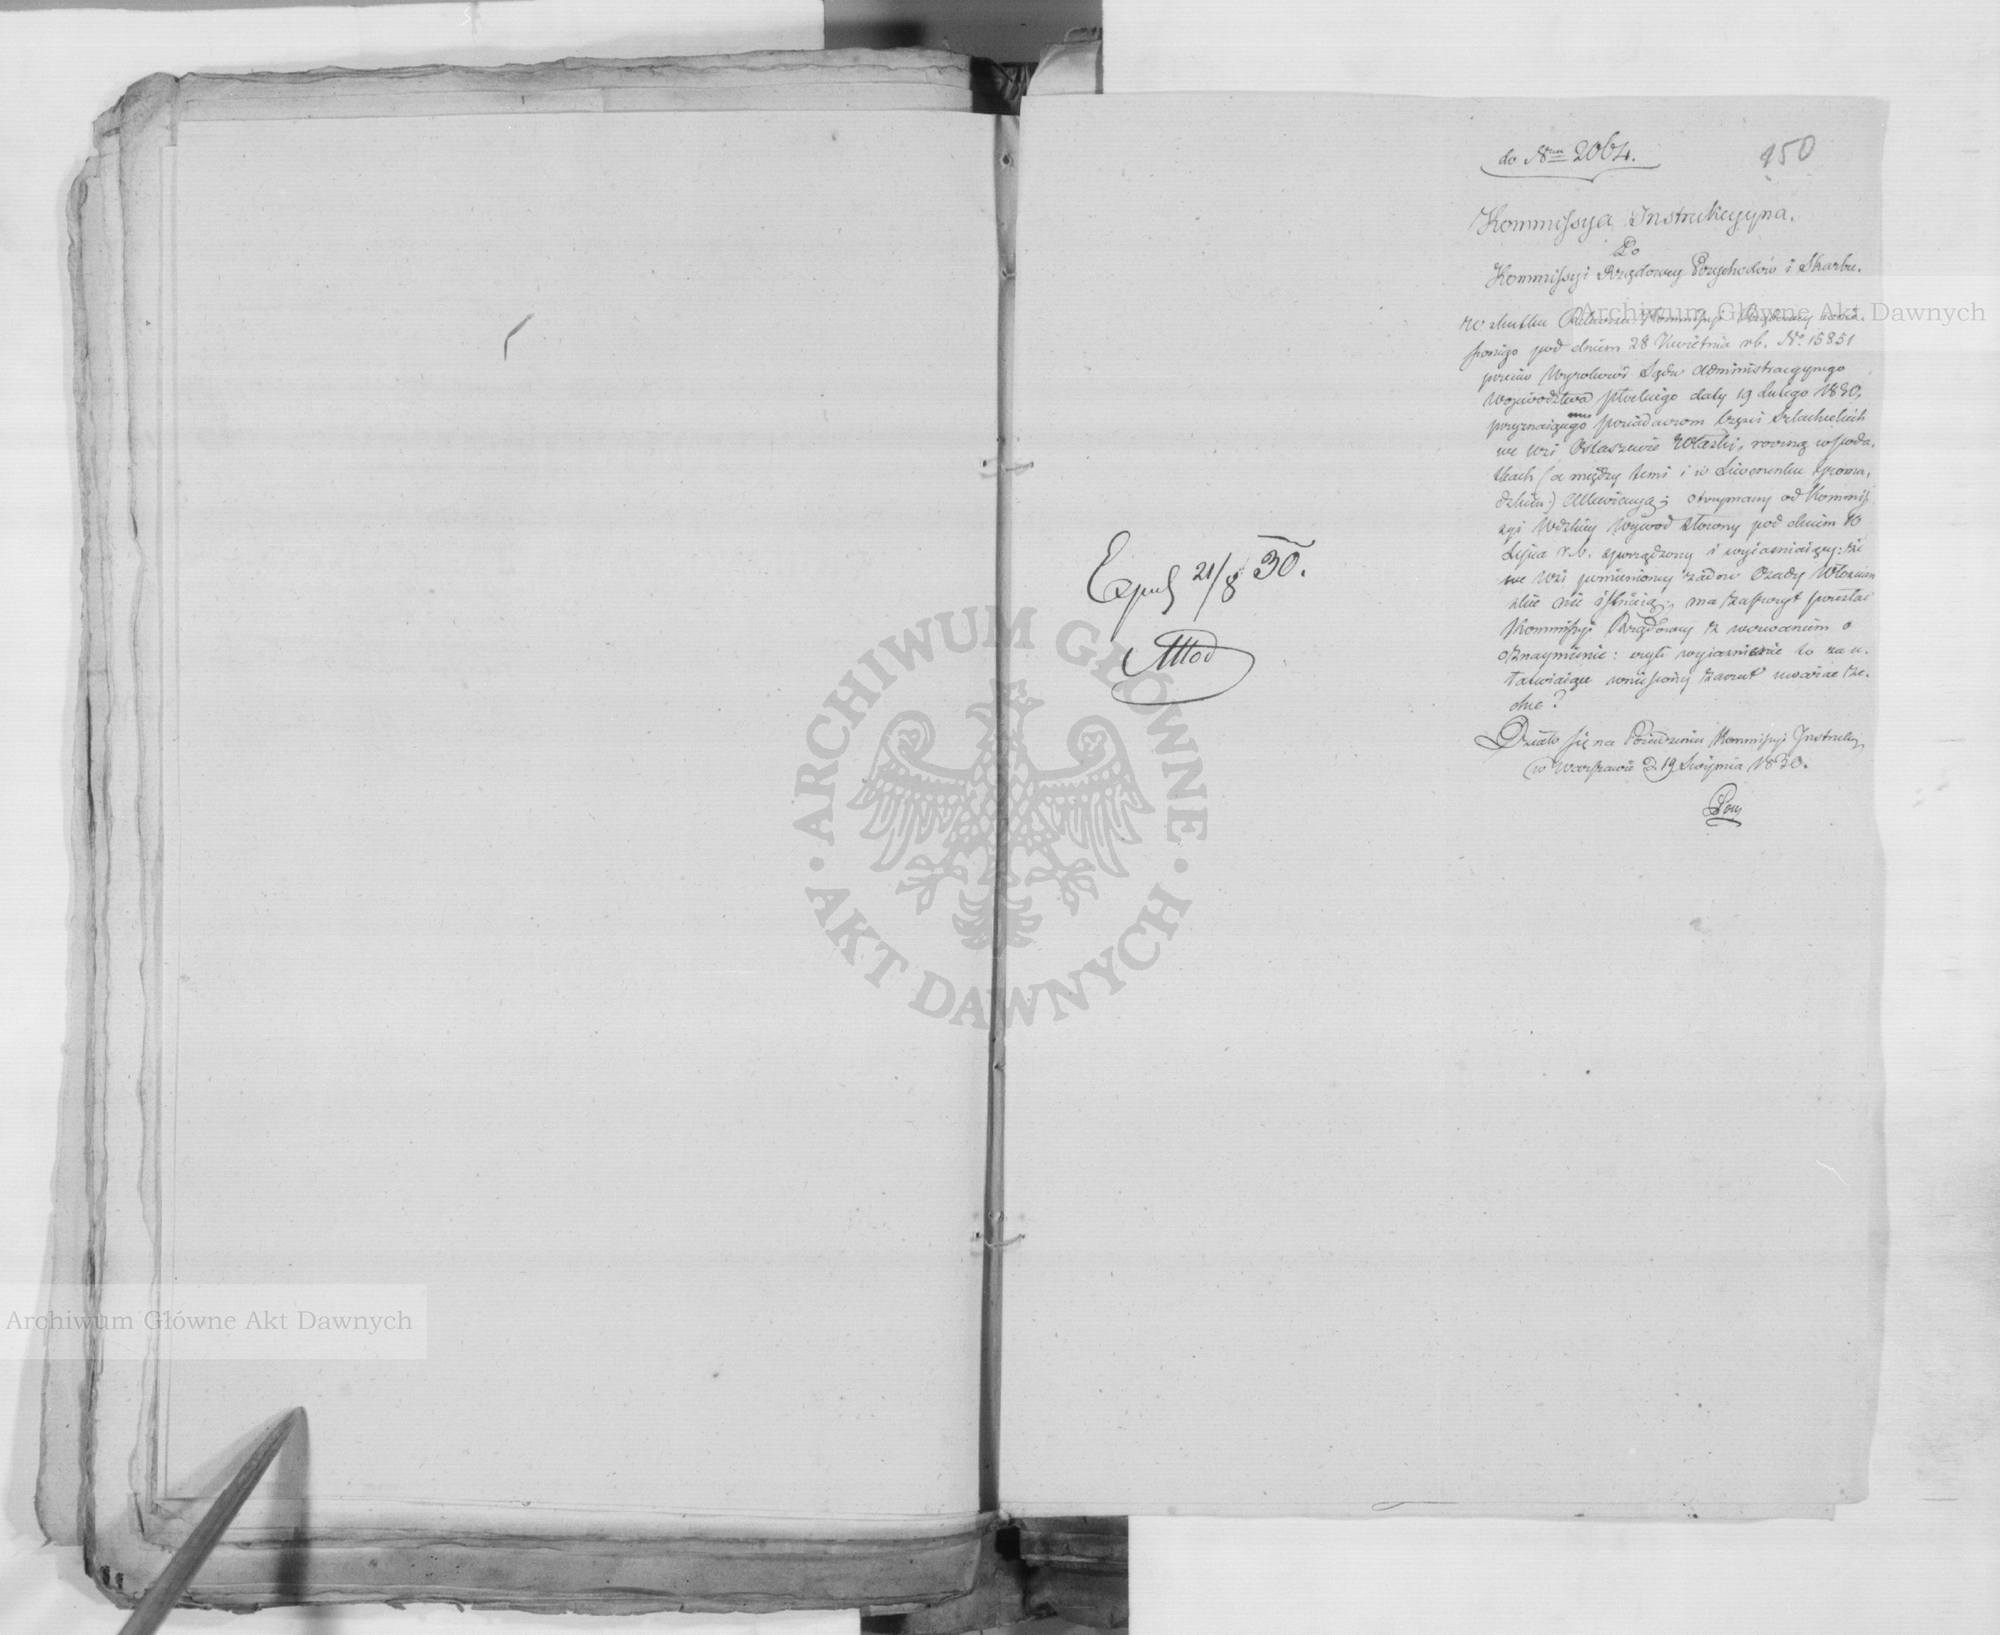 do Nru 2064.
150
Kommissya Instrukcyyna.
Do
Kommissyi Rządowey Przychodów i Skarbu.
w skutku Rekursu Kommissyi Rządowey zanie-
sionego pod dniem 28 Kwietnia r.b. No 15851
przeciw Wyrokowi Sądu Administracyynego
Województwa Płockiego daty 19 Lutego 1830,
przyznaiącego posiadaczom części Szlacheckich
we wsi Ostaszewie Włuski, roczną w poda-
tkach (a między temi i w Liwerunku Groma-
dzkim) Allewiacyą; otrzymany od Kommis-
syi Wdzkiey Wywod Słowny pod dniem 10
Lipca r.b. sporządzony i wyiaśniaiący: że
we wsi pomienioney żadne Osady Włościań-
skie nie istnieią, ma zaszczyt przesłać
Kommissyi Rządowey z wezwaniem o
oznaymienie: czyli wyiaśnienie to za u-
łatwiaiące wniesiony zarzut uważać ze-
chce?
Działo się na Posiedzeniu Kommissyi Instrukcy
w Warszawie d. 19 Sierpnia 1830.
Exped 21/8 30.
Archiwum Główne Akt Dawnych
ARCHIWUM GŁÓWNE
AKT DAWNYCH
Archiwum Główne Akt Dawnych